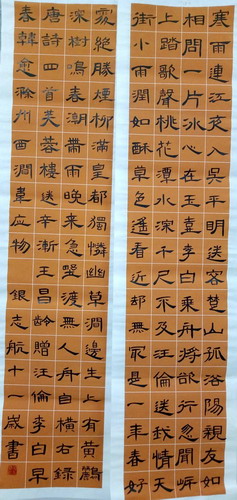 寒雨連江夜入吳平明送客楚山孤洛陽親友如
相問一片冰心在玉壺李白乘舟將欲行忽聞岸
上踏歌聲桃花潭水深千尺不及汪倫送我情天
街小雨潤如酥草色遙看近却無最是一年春好
處絕勝煙柳滿皇都獨憐幽草澗邊生上有黃鸝
深樹鳴春潮帶雨晚來急野渡無人舟自橫右錄
唐詩四首芙蓉樓送辛漸王昌齡贈汪倫李白早
春韓愈滁州西澗韋應物 銀志航十一歲書